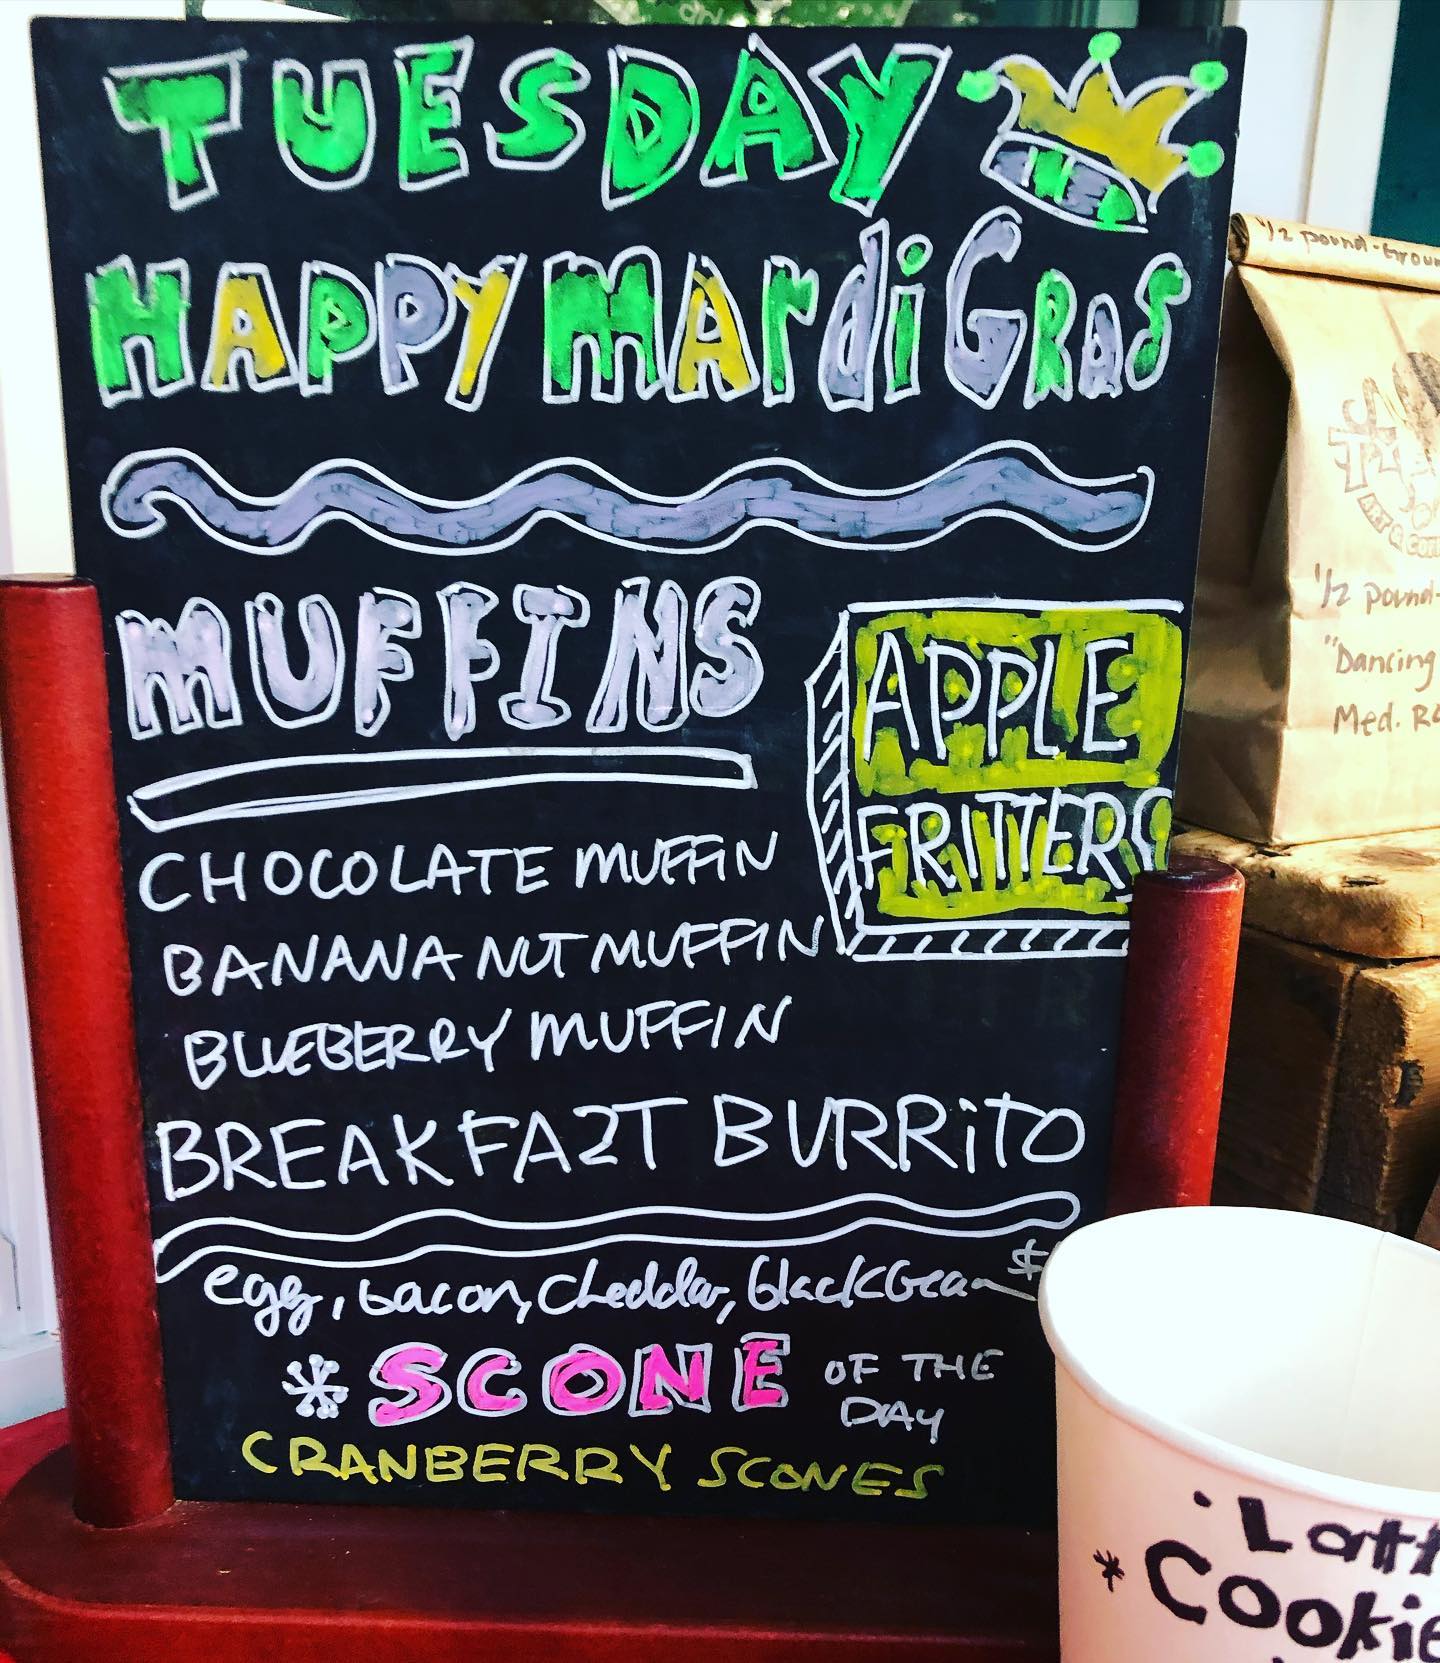 TUESDAY
HAPPY MArdi GRAS
MUFFINS
APPLE
FRITTERS
CHOCOLATE MUFFIN
BANANA NUT MUFFIN
BLUEBERRY MUFFIN
BREAKFAST BURRiTO
egg, bacon, cheddar, black bean $
* SCONE OF THE
DAY
CRANBERRY SCONES
1/2 pound-Groun
ART &
1/2 pound-
"Dancing
Med.
Latt
* Cookie